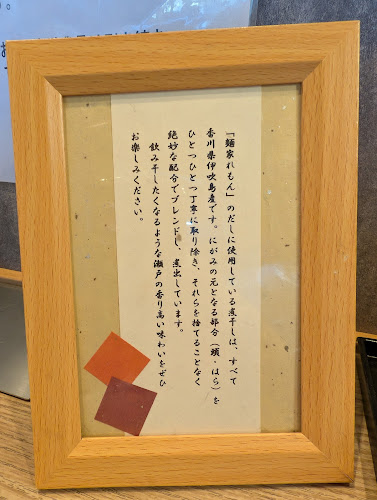 「麺家れもん」のだしに使用している煮干しは、すべて
香川県伊吹島産です。にがみの元となる部分（頭・はら）を
ひとつひとつ丁寧に取り除き、それらを捨てることなく
絶妙な配合でブレンドし、煮出しています。
飲み干したくなるような瀬戸の香り高い味わいをぜひ
お楽しみください。